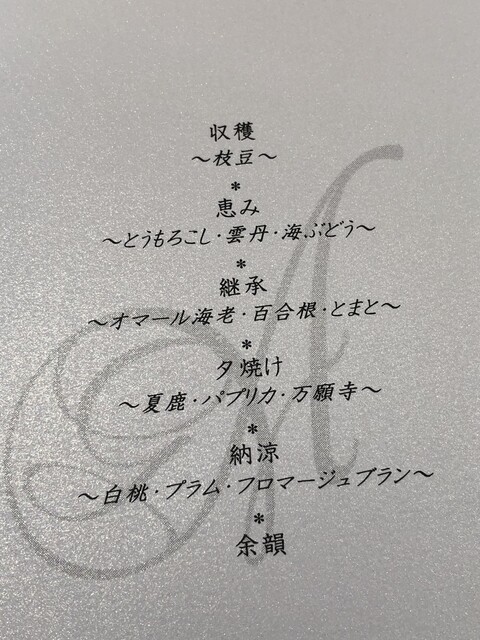 収穫
～枝豆～
*
恵み
～とうもろこし・雲丹・海ぶどう～
*
継承
～オマール海老・百合根・とまと～
*
夕焼け
～夏鹿・パプリカ・万願寺～
*
納涼
～白桃・プラム・フロマージュブラン～
*
余韻
A